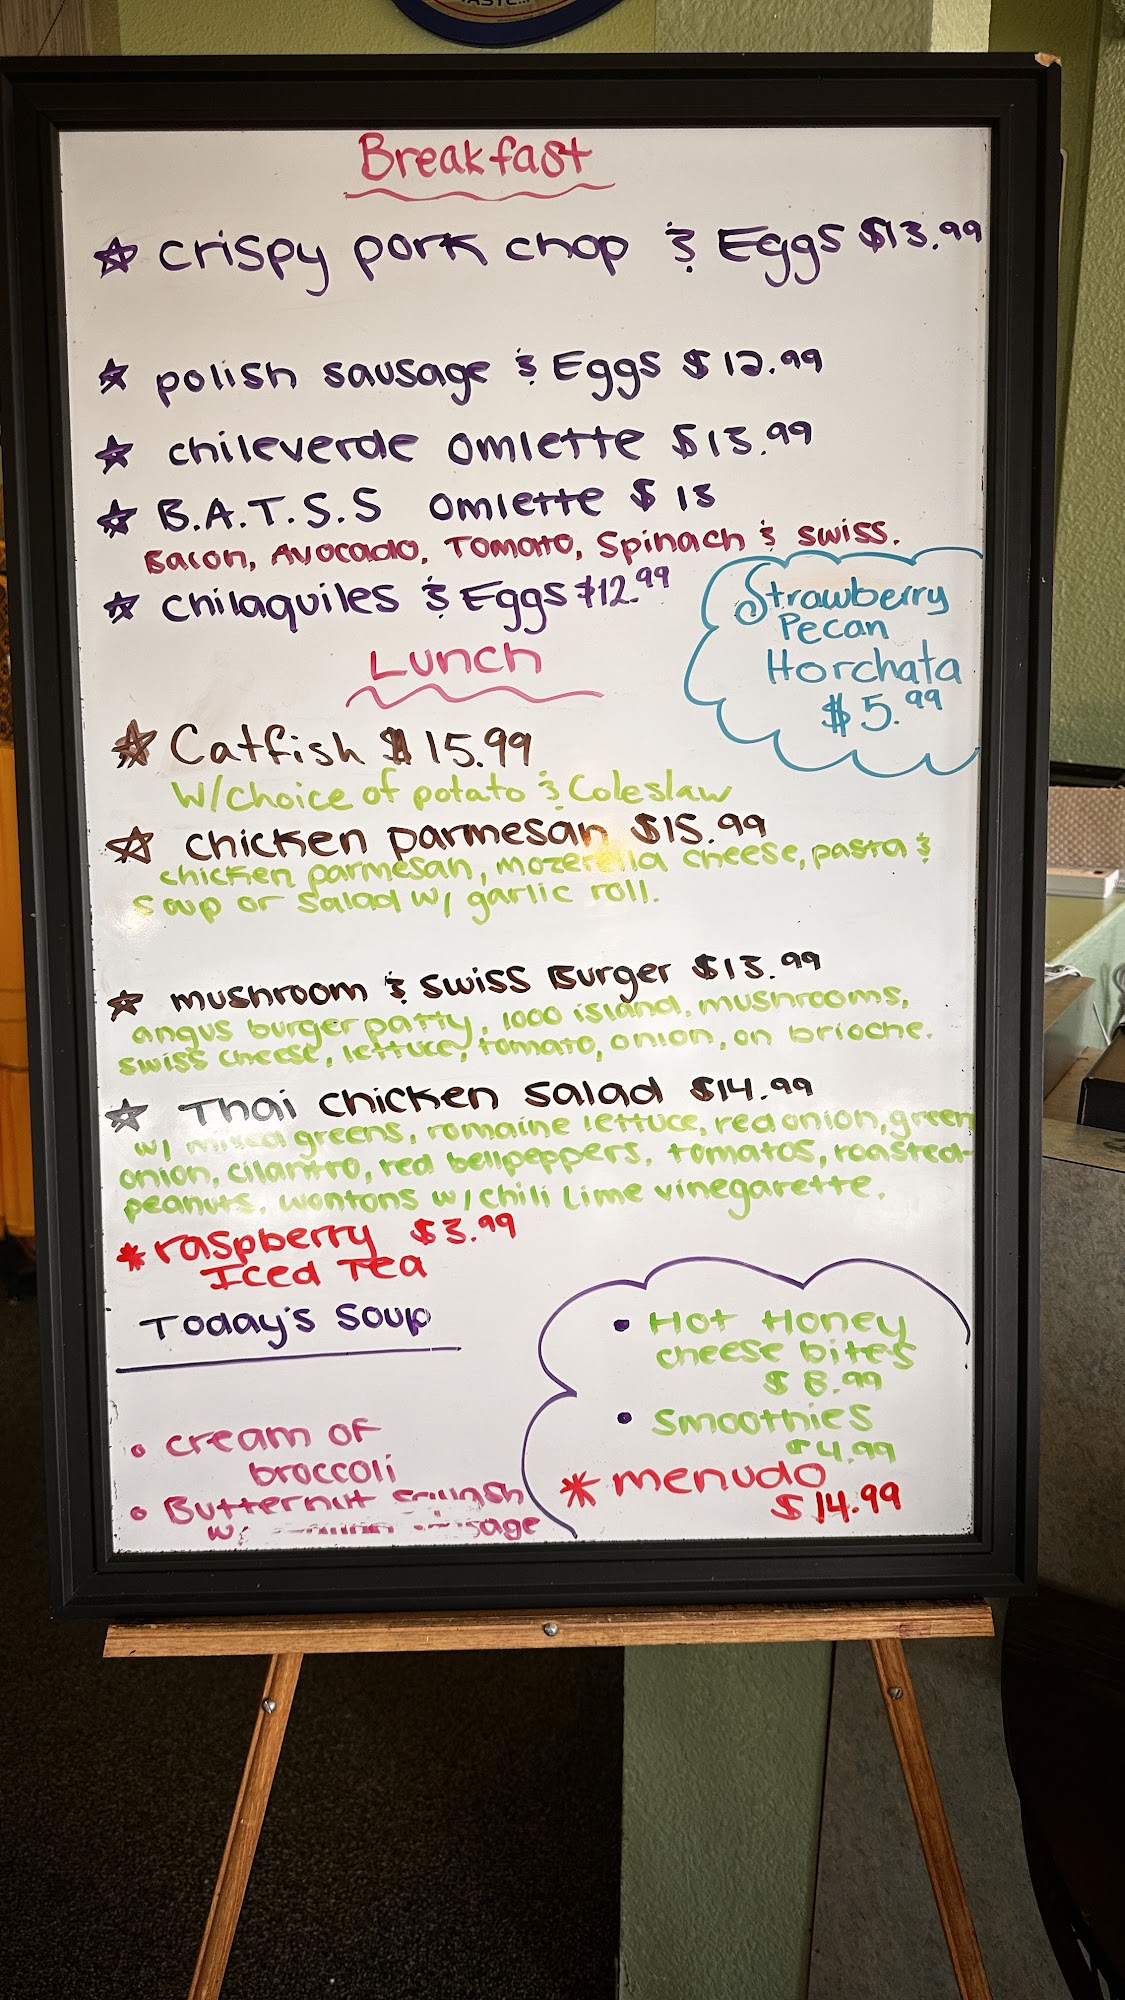 TASTE...
Breakfast
crispy pork chop & Eggs $13.99
polish sausage & Eggs $12.99
chileverde omlette $13.99
B.A.T.S.S omlette $13
Bacon, Avocado, Tomato, Spinach & swiss.
chilaquiles & Eggs $12.99
Strawberry
Pecan
Horchata
$5.99
Lunch
Catfish $15.99
W/choice of potato & Coleslaw
chicken parmesan $15.99
chicken parmesan, mozerella cheese, pasta &
soup or salad w/ garlic roll.
mushroom & swiss Burger $13.99
angus burger patty, 1000 island, mushrooms,
swiss cheese, lettuce, tomato, onion, on brioche.
Thai chicken salad $14.99
w/ mixed greens, romaine lettuce, red onion, green
onion, cilantro, red bellpeppers, tomatos, roasted
peanuts, wontons w/ chili lime vinegarette.
*raspberry $3.99
Iced Tea
Today's Soup
• cream of
broccoli
• Butternut squash
w/
• Hot Honey
cheese bites
$8.99
• Smoothies
$4.99
*menudo
$14.99